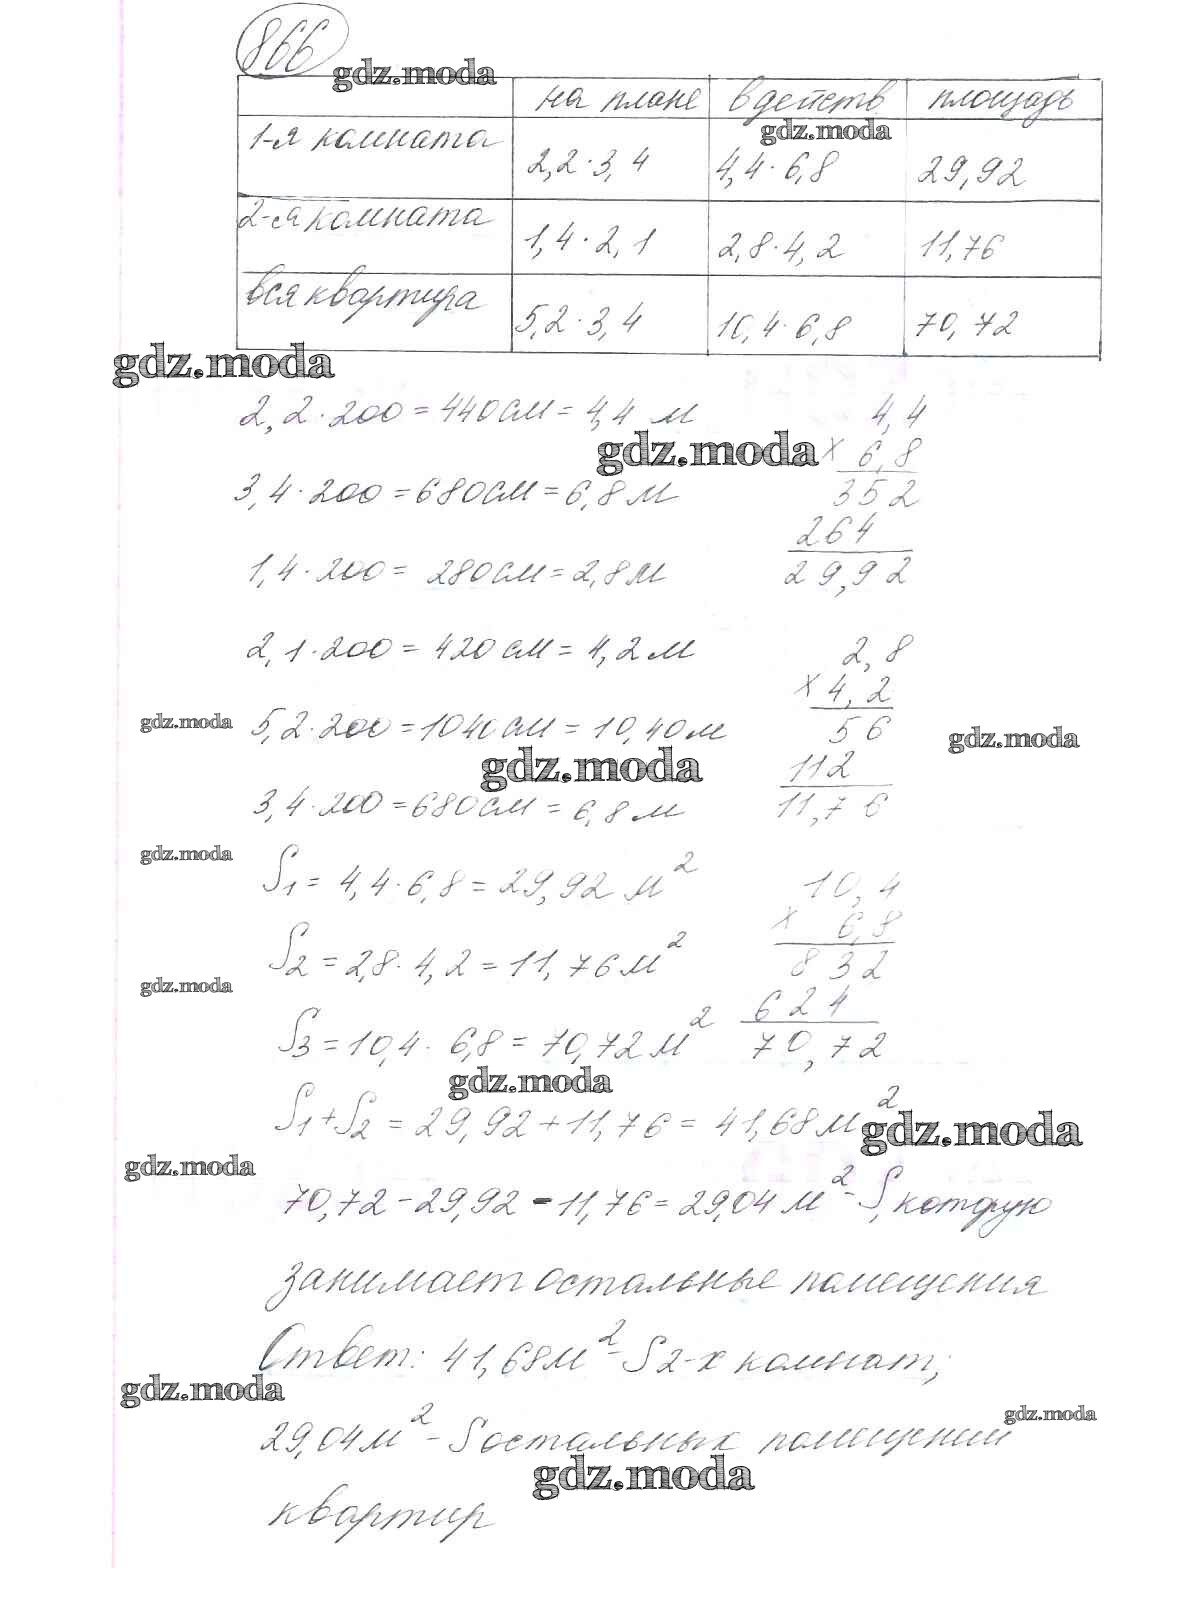 866
gdz.moda
на плане в действ площадь
gdz.moda
1-я комната 2,2·3,4 4,4·6,8 29,92
2-я комната 1,4·2,1 2,8·4,2 11,76
вся квартира 5,2·3,4 10,4·6,8 70,72
gdz.moda
2,2·200=440см=4,4 м
4,4
gdz.moda
× 6,8
3,4·200=680см=6,8м
352
264
1,4·200= 280см=2,8м
29,92
2,1·200= 420см= 4,2м
2,8
× 4,2
gdz.moda
5,2·200=1040см=10,40м
56
gdz.moda
gdz.moda
112
3,4·200=680см=6,8м
11,76
gdz.moda
S1= 4,4·6,8=29,92 м2
10,4
× 6,8
S2=2,8·4,2=11,76м2
832
gdz.moda
624
S3=10,4· 6,8=70,72м2
70,72
gdz.moda
S1+S2=29,92+11,76= 41,68м2
gdz.moda
gdz.moda
70,72-29,92-11,76=29,04 м2- S, которую
занимает остальные помещения
Ответ: 41,68м2-S 2-х комнат;
gdz.moda
gdz.moda
29,04м2- S остальных помещений
gdz.moda
квартир